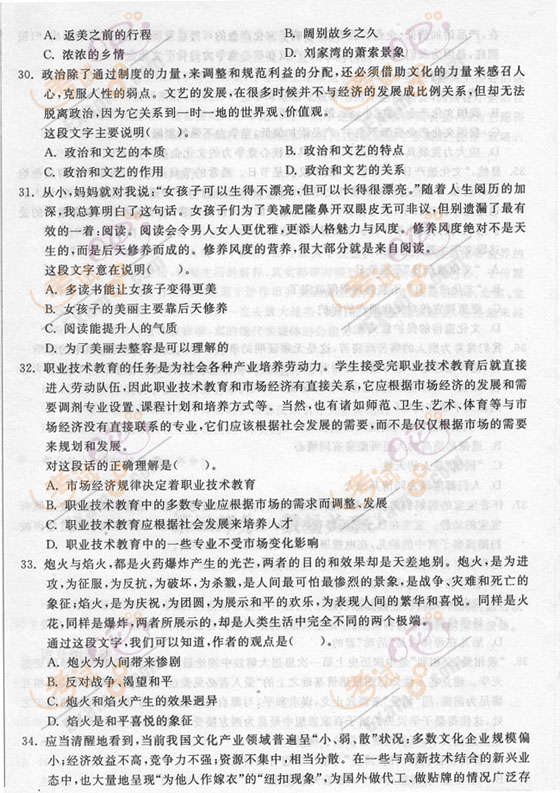 A. 返美之前的行程 B. 阔别故乡之久
C. 浓浓的乡情 D. 刘家湾的萧索景象
30. 政治除了通过制度的力量,来调整和规范利益的分配,还必须借助文化的力量来感召人
心,克服人性的弱点。文艺的发展,在很多时候并不与经济的发展成比例关系,但却无法
脱离政治,因为它关系到一时一地的世界观、价值观。
这段文字主要说明( )。
A. 政治和文艺的本质 B. 政治和文艺的特点
C. 政治和文艺的作用 D. 政治和文艺的关系
31. 从小,妈妈就对我说:“女孩子可以生得不漂亮,但可以长得很漂亮。”随着人生阅历的加
深,我总算明白了这句话。女孩子们为了美减肥隆鼻开双眼皮无可非议,但别遗漏了最有
效的一着:阅读。阅读会令男人女人更优雅,更添人格魅力与风度。修养风度绝对不是天
生的,而是后天修养而成的。修养风度的营养,很大部分就是来自阅读。
这段文字意在说明( )。
A. 多读书能让女孩子变得更美
B. 女孩子的美丽主要靠后天修养
C. 阅读能提升人的气质
D. 为了美丽去整容是可以理解的
32. 职业技术教育的任务是为社会各种产业培养劳动力。学生接受完职业技术教育后就直接
进入劳动队伍,因此职业技术教育和市场经济有直接关系,它应根据市场经济的发展和需
要调剂专业设置、课程计划和培养方式等。当然,也有诸如师范、卫生、艺术、体育等与市
场经济没有直接联系的专业,它们应该根据社会发展的需要,而不是仅仅根据市场的需要
来规划和发展。
对这段话的正确理解是( )。
A. 市场经济规律决定着职业技术教育
B. 职业技术教育中的多数专业应根据市场的需求而调整、发展
C. 职业技术教育应根据社会发展来培养人才
D. 职业技术教育中的一些专业不受市场变化影响
33. 炮火与焰火,都是火药爆炸产生的光芒,两者的目的和效果却是天差地别。炮火,是为进
攻,为征服,为反抗,为破坏,为杀戮,是人间最可怕最惨烈的景象,是战争、灾难和死亡的
象征;焰火,是为庆祝,为团圆,为展示和平的欢乐,为表现人间的繁华和喜悦。同样是火
花,同样是爆炸,两者所展示的,却是人类生活中完全不同的两个极端。
通过这段文字,我们可以知道,作者的观点是( )。
A. 炮火为人间带来惨剧
B. 反对战争、渴望和平
C. 炮火和焰火产生的效果迥异
D. 焰火是和平喜悦的象征
34. 应当清醒地看到,当前我国文化产业领域普遍呈“小、弱、散”状况:多数文化企业规模偏
小;经济效益不高,竞争力不强;资源不集中,相当分散。在一些与高新技术结合的新兴业
态中,也大量地呈现“为他人作嫁衣”的“纽扣现象”,为国外做代工、做贴牌的情况广泛存